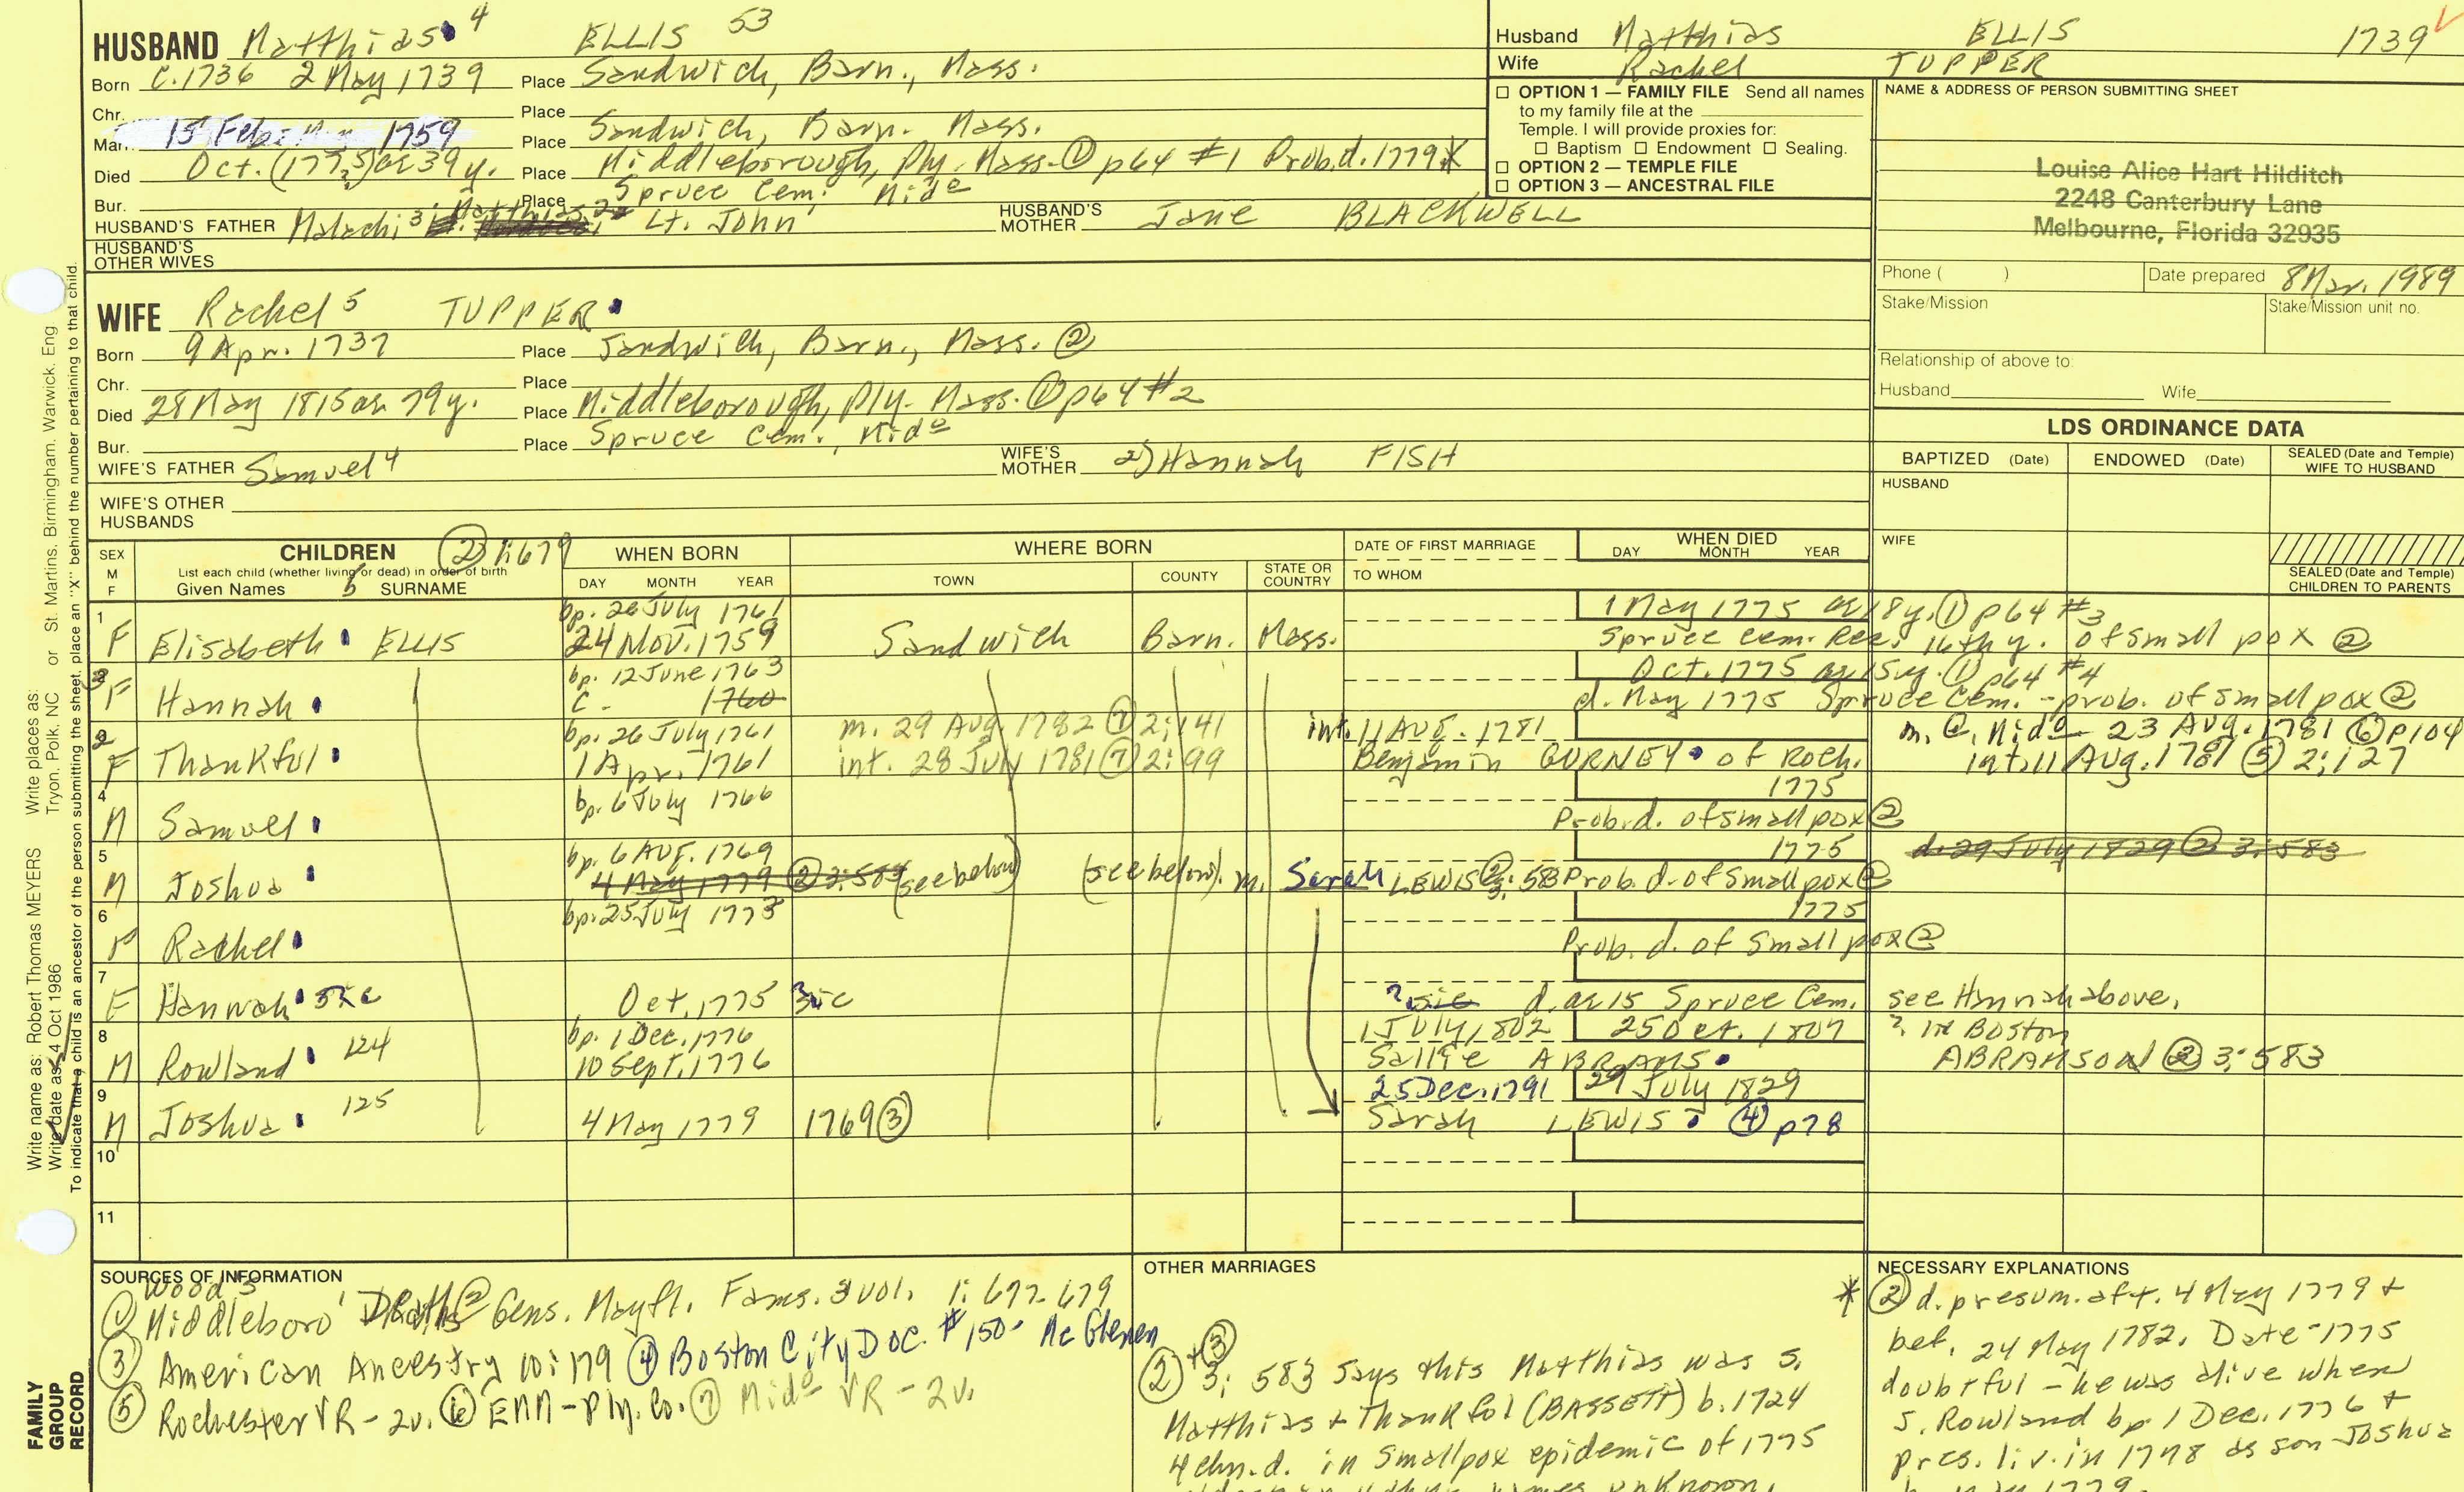 HUSBAND Matthias 4 ELLIS 53
Born C.1736 2 May 1739 Place Sandwich, Barn., Mass.
Chr. Place
Mar. 15 Feb. 1759 Place Sandwich, Barn. Mass.
Died Oct. (1775) ae 39 y. Place Middleborough, Ply. Mass. ① p64 #1 Prob. d. 1779 *
Bur. Place Spruce Cem. Mido
HUSBAND'S FATHER Malachi 3 Matthias 2 Lt. John HUSBAND'S MOTHER Jane BLACKWELL
HUSBAND'S OTHER WIVES
WIFE Rachel 5 TUPPER
Born 9 Apr. 1737 Place Sandwich, Barn., Mass. ②
Chr. Place
Died 28 May 1815 ae 79 y. Place Middleborough, Ply. Mass. ① p64 #2
Bur. Place Spruce Cem., Mido
WIFE'S FATHER Samuel 4 WIFE'S MOTHER 2) Hannah FISH
WIFE'S OTHER HUSBANDS
Husband Matthias ELLIS 1739
Wife Rachel TUPPER
☐ OPTION 1 — FAMILY FILE Send all names
to my family file at the
Temple. I will provide proxies for:
☐ Baptism ☐ Endowment ☐ Sealing.
☐ OPTION 2 — TEMPLE FILE
☐ OPTION 3 — ANCESTRAL FILE
NAME & ADDRESS OF PERSON SUBMITTING SHEET
Louise Alice Hart Hilditch
2248 Canterbury Lane
Melbourne, Florida 32935
Phone ( ) Date prepared 8 Mar. 1989
Stake/Mission Stake/Mission unit no.
Relationship of above to:
Husband Wife
LDS ORDINANCE DATA
BAPTIZED (Date) ENDOWED (Date) SEALED (Date and Temple) WIFE TO HUSBAND
HUSBAND
WIFE
SEALED (Date and Temple) CHILDREN TO PARENTS
SEX M F
CHILDREN ② 1:679
List each child (whether living or dead) in order of birth
Given Names 5 SURNAME
WHEN BORN
DAY MONTH YEAR
WHERE BORN
TOWN COUNTY STATE OR COUNTRY
DATE OF FIRST MARRIAGE
TO WHOM
WHEN DIED
DAY MONTH YEAR
1 bp. 26 July 1761 1 May 1775 ae 18 y. ① p64 #3
F Elisabeth ELLIS 24 Nov. 1759 Sandwich Barn. Mass. Spruce Cem. Rec. 16th y. of small pox ②
3 bp. 12 June 1763 Oct. 1775 ae 15 y. ① p64 #4
F Hannah C. 1760 d. May 1775 Spruce Cem. -- prob. of small pox ②
2 bp. 26 July 1761 m. 29 Aug. 1782 ⑦ 2:141 int. 11 Aug. 1781 m. @ Mido 23 Aug. 1781 ⑥ p104
F Thankful 1 Apr. 1761 int. 28 July 1781 ⑦ 2:99 Benjamin GURNEY of Roch. int. 11 Aug. 1781 ⑤ 2:127
4 bp. 6 July 1766 1775
M Samuel Prob. d. of small pox ②
5 bp. 6 Aug. 1769 1775 d. 29 July 1829 ② 3:583
M Joshua 4 May 1779 ② 3:583 (see below) (see below) m. Sarah LEWIS ② 3:583 Prob. d. of small pox ②
6 bp. 25 July 1773 1775
F Rachel Prob. d. of small pox ②
7
F Hannah sic Oct. 1775 sic ? sic d. ae 15 Spruce Cem. see Hannah above.
8 bp. 1 Dec. 1776 1 July 1802 25 Oct. 1807 ? in Boston
M Rowland 124 10 Sept. 1776 Sallie ABRAMS ABRAMSON ② 3:583
9 25 Dec. 1791 29 July 1829
M Joshua 125 4 May 1779 1769 ③ Sarah LEWIS ④ p78
10
11
SOURCES OF INFORMATION
① Wood's Middleboro' Deaths ② Gens. Mayfl. Fams. 3 vol. 1:677-679
③ American Ancestry 10:179 ④ Boston City Doc. #150 - McGlenen
⑤ Rochester VR - 2v. ⑥ EMM - Ply. Co. ⑦ Mido VR - 2v.
OTHER MARRIAGES
② + ③
3:583 says this Matthias was s.
Matthias + Thankful (BASSETT) b. 1724
4 chn. d. in smallpox epidemic of 1775
names unknown.
NECESSARY EXPLANATIONS
* ② d. presum. aft. 4 May 1779 +
bef. 24 May 1782. Date 1775
doubtful - he was alive when
s. Rowland bp. 1 Dec. 1776 +
pres. liv. in 1778 as son Joshua
1779.
Write name as: Robert Thomas MEYERS Write places as: Tryon, Polk, NC or St. Martins, Birmingham, Warwick, Eng
Write date as: 4 Oct 1986
To indicate that a child is an ancestor of the person submitting the sheet, place an "X" behind the number pertaining to that child.
FAMILY GROUP RECORD